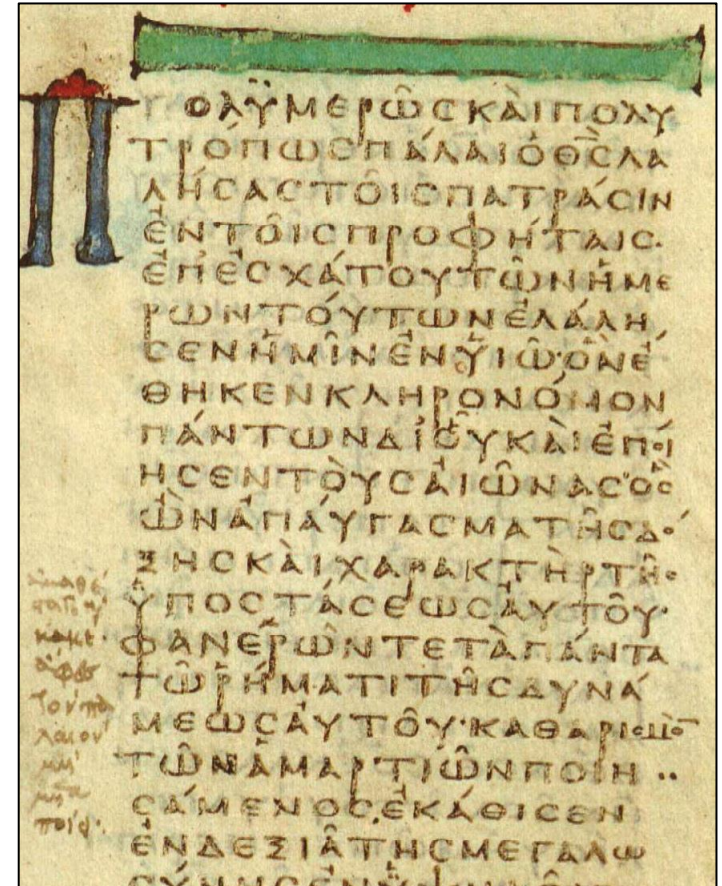 ΠΟΛΫΜΕΡΩ͂ϹΚΑῚΠΟΛΥ
ΤΡΌΠΩϹΠΆΛΑΙὉΘ̅Ϲ̅ΛΑ
ΛΉϹΑϹΤΟΙ͂ϹΠΑΤΡΆϹΙΝ
ἘΝΤΟΙ͂ϹΠΡΟΦΉΤΑΙϹ·
ἘΠ᾽ἘϹΧΆΤΟΥΤΩ͂ΝἩΜΕ
ΡΩ͂ΝΤΟΎΤΩΝἘΛΆΛΗ
ϹΕΝἩΜΙ͂ΝἘΝΫΙΩ͂·ὋΝἜ
ΘΗΚΕΝΚΛΗΡΟΝΌΜΟΝ
ΠΆΝΤΩΝΔΙ᾽ΟὟΚΑῚἘΠΟΊ
ΗϹΕΝΤΟῪϹΑἸΩ͂ΝΑϹὋϹ
ὪΝἈΠΑΎΓΑϹΜΑΤΗ͂ϹΔΌ
ΞΗϹΚΑῚΧΑΡΑΚΤῊΡΤΗ͂Ϲ
ὙΠΟϹΤΆϹΕΩϹΑὐΤΟΥ͂·
ΦΑΝΕΡΩ͂ΝΤΕΤᾺΠΆΝΤΑ
ΤΩ͂ῬΉΜΑΤΙΤΗ͂ϹΔΥΝΆ
ΜΕΩϹΑὐΤΟΥ͂·ΚΑΘΑΡΙϹΜῸ̅
ΤΩ͂ΝἉΜΑΡΤΙΩ͂ΝΠΟΙΗ
ϹΆΜΕΝΟϹ,ἘΚΆΘΙϹΕΝ
ἘΝΔΕΞΙΑ͂ΤΗ͂ϹΜΕΓΑΛΩ
ἀμαθέ
κακὲ·
ἄφες
τὸν πα
λαιον
μὴ
μετα
ποίει